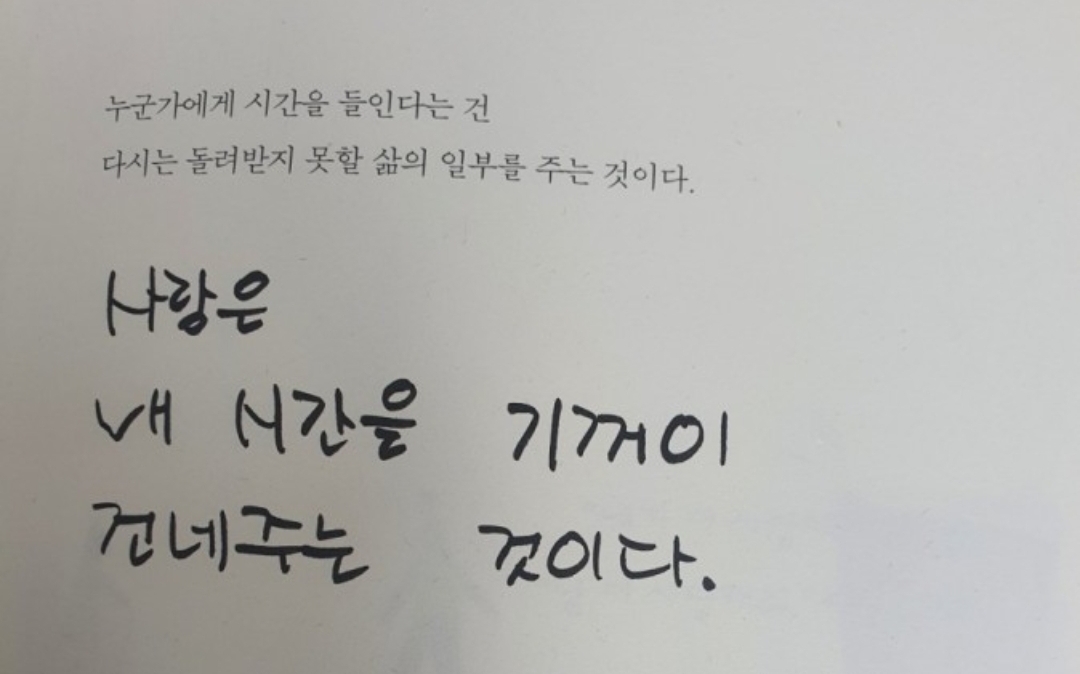 누군가에게 시간을 들인다는 건
다시는 돌려받지 못할 삶의 일부를 주는 것이다.
사랑은
내 시간을 기꺼이
건네주는 것이다.